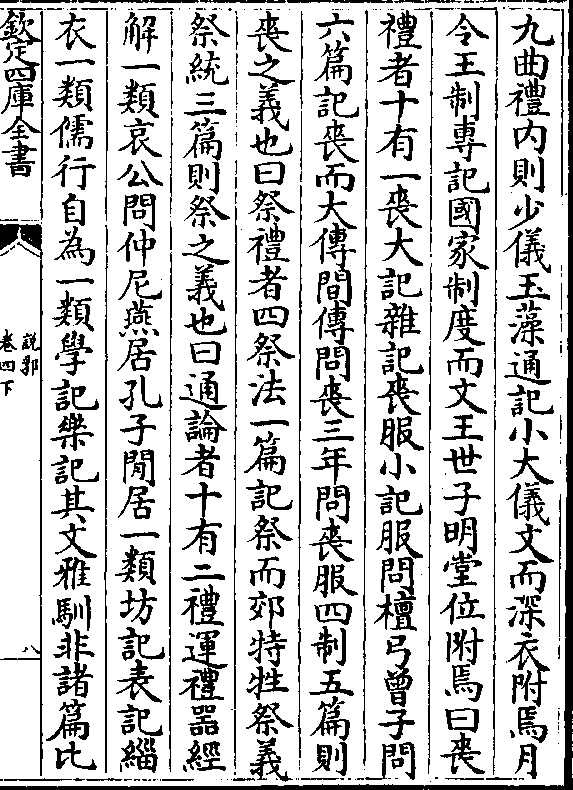 九曲禮内則少儀玉藻通記小大儀文而深衣附焉月
令王制專記國家制度而文王世子明堂位附焉曰喪
禮者十有一喪大記雜記喪服小記服問檀弓曾子問
六篇記喪而大傳間傳問喪三年問喪服四制五篇則
喪之義也曰祭禮者四祭法一篇記祭而郊特牲祭義
祭統三篇則祭之義也曰通論者十有二禮運禮器經
解一類哀公問仲尼燕居孔子閒居一類坊記表記緇
衣一類儒行自為一類學記樂記其文雅馴非諸篇比
欽定四庫全書
說郛
卷四下
八